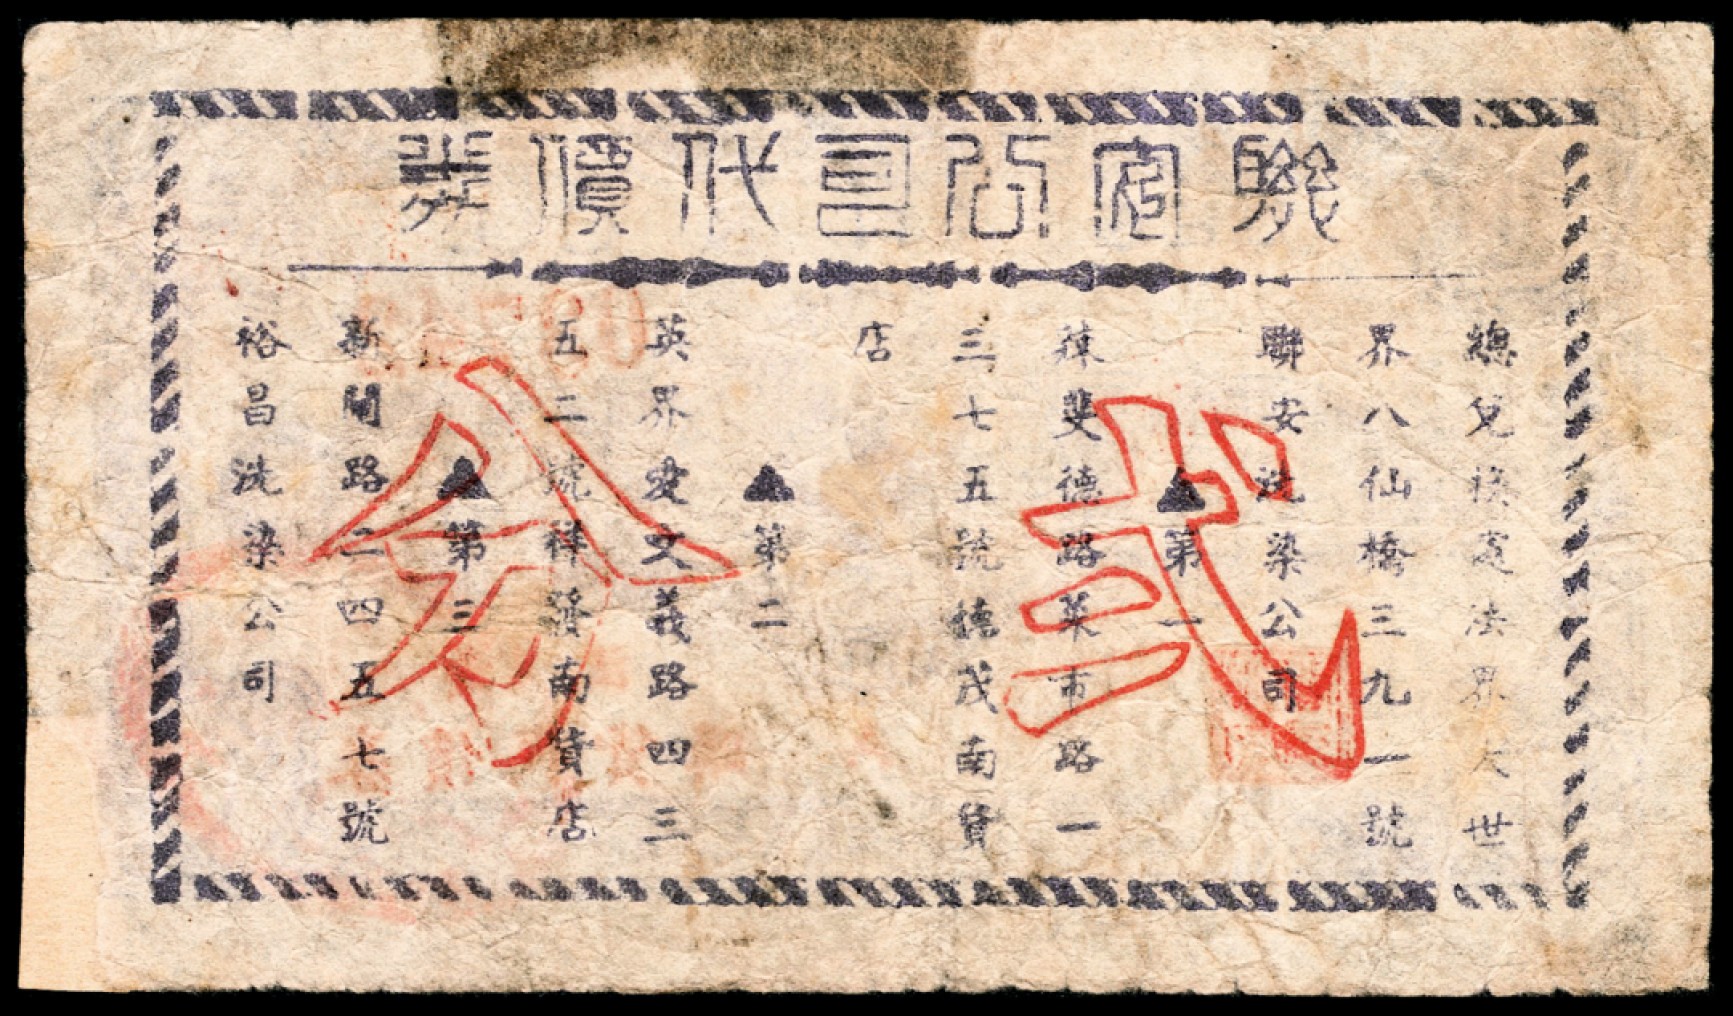 聯安公司代價券
總兌換處法界大世
界八仙橋三九一號
聯安洗染公司
▲第一
辣斐德路菜市路一
三七五號德茂南貨
店
▲第二
英界愛文義路四三
五二號祥濟南貨店
▲第三
新聞路二四五七號
裕昌洗染公司
貳分